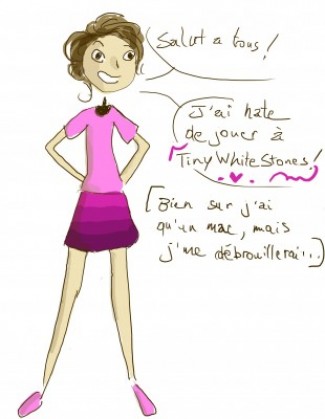 Salut a tous!
J'ai hate
de jouer à
Tiny White Stones!
[Bien sur j'ai
qu'un mac, mais
j'me débrouillerai...]